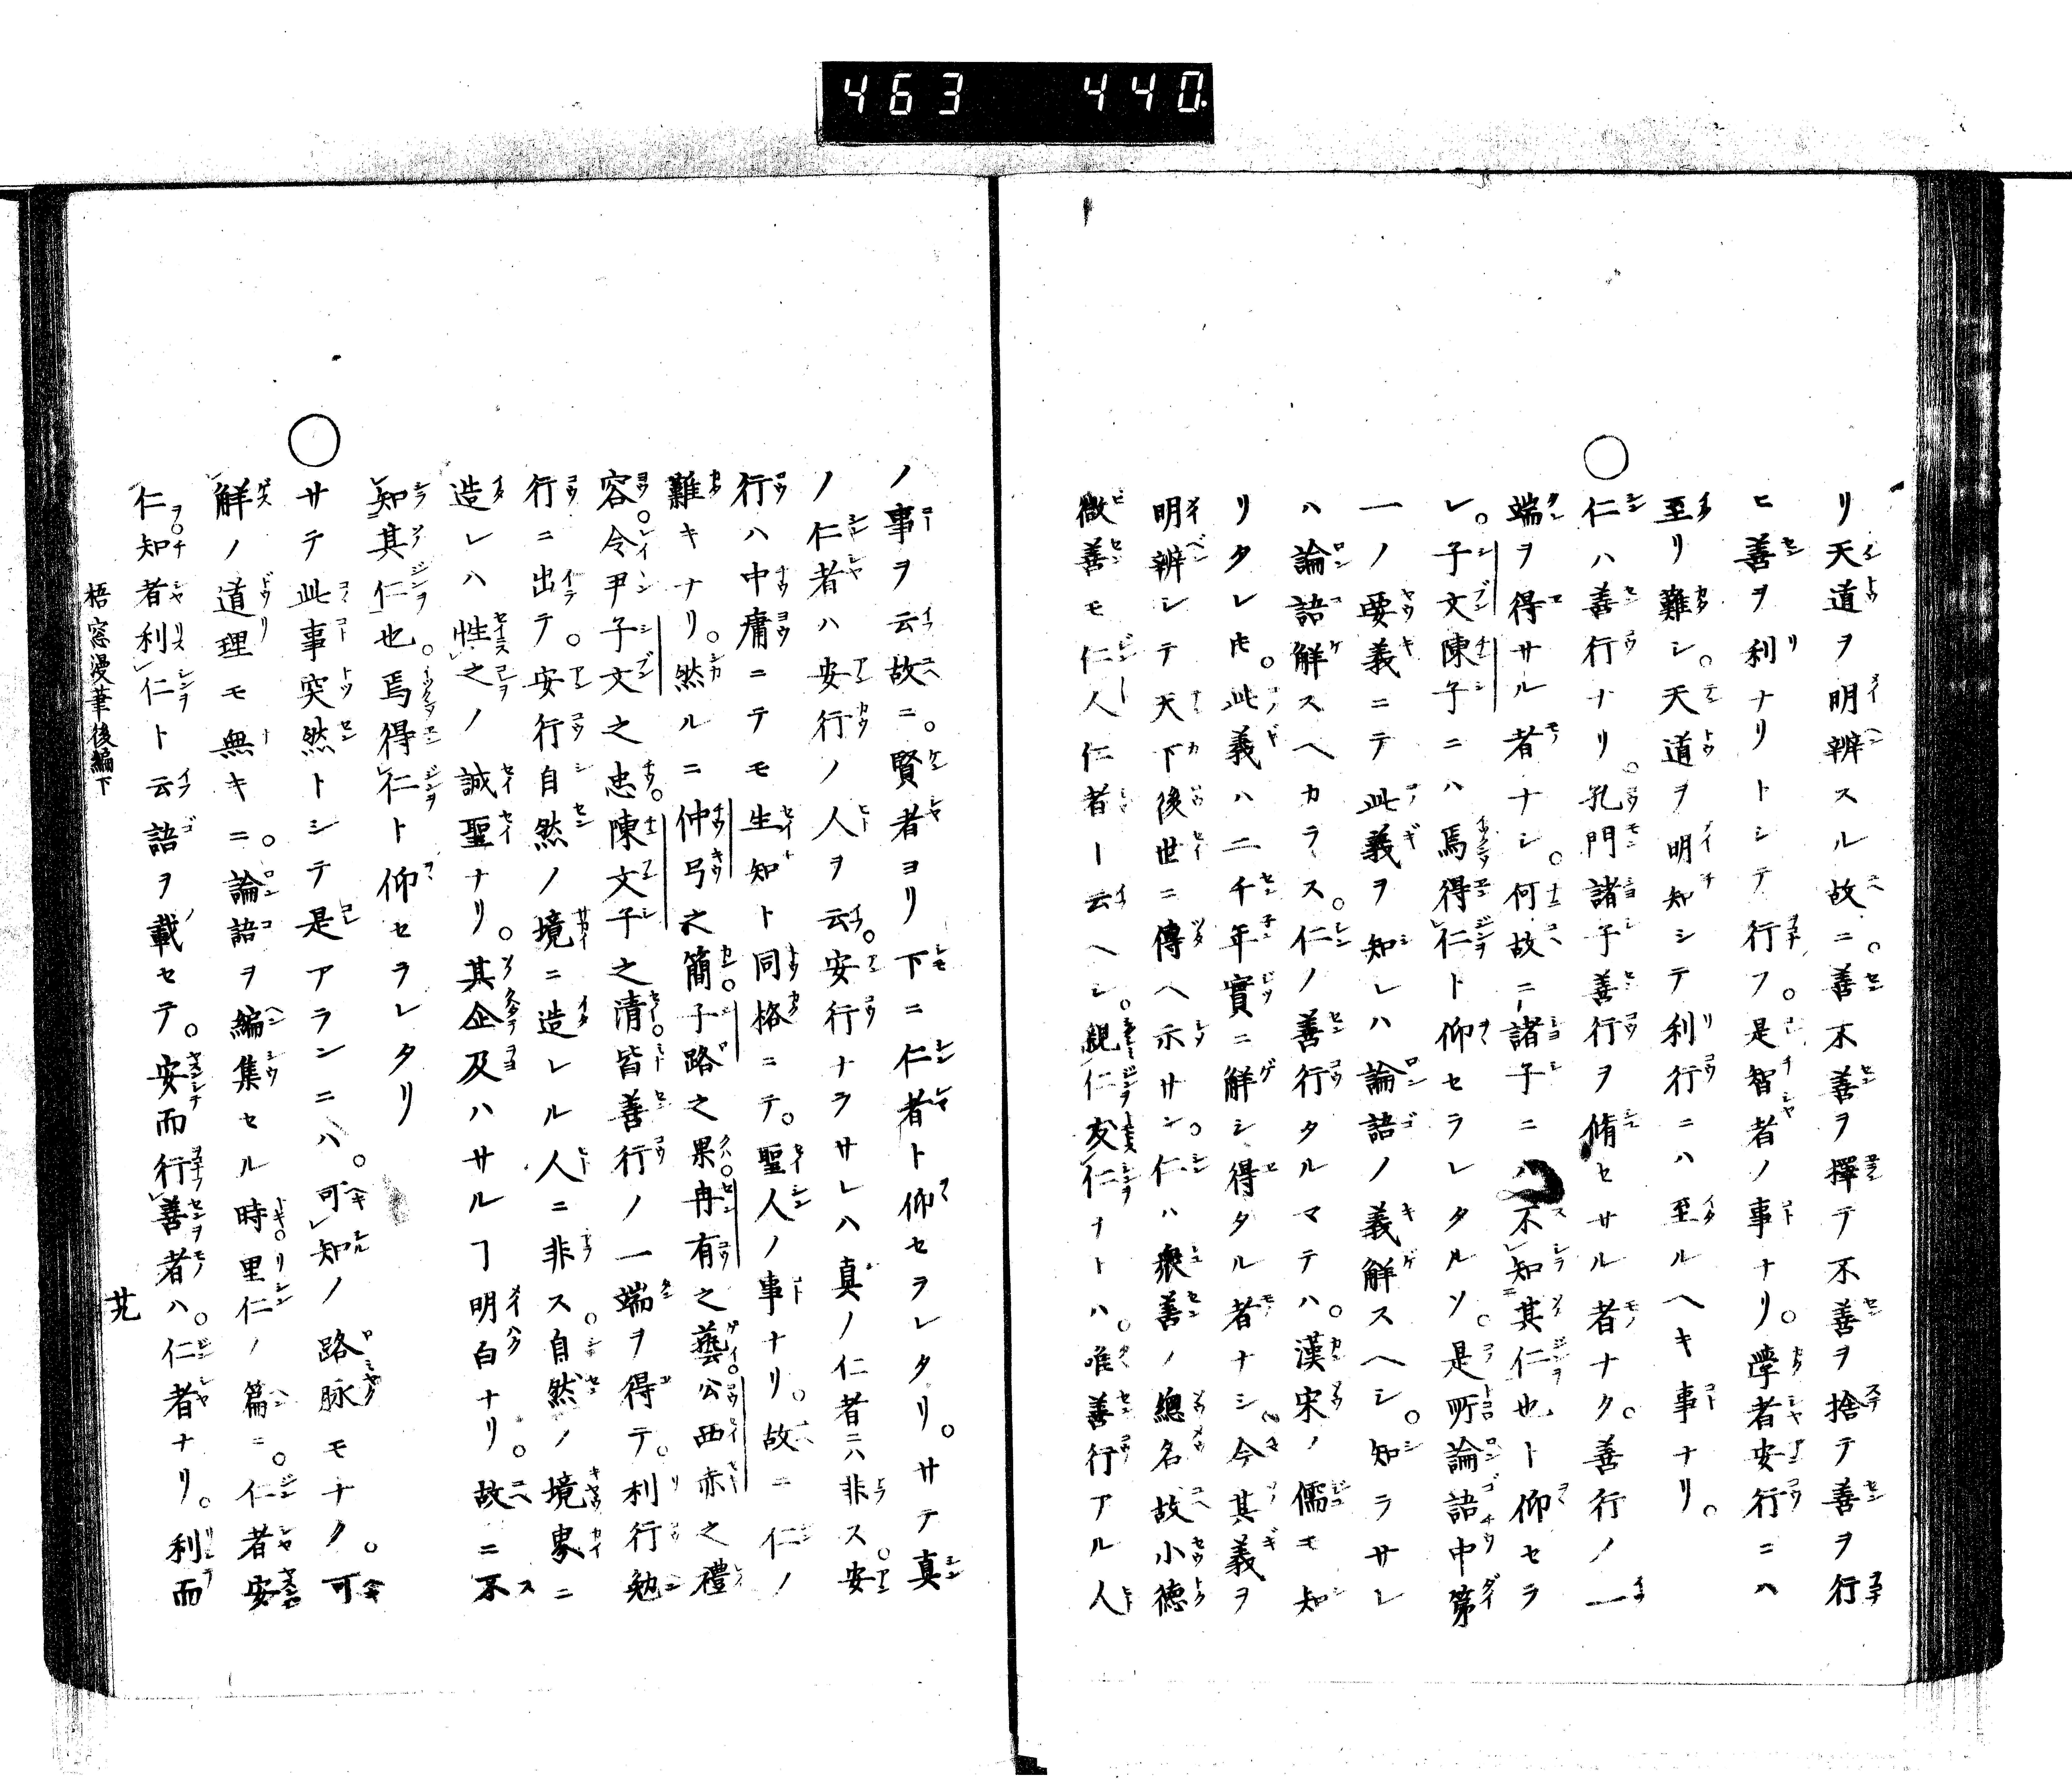 463 440
リ天道ヲ明辨スル故ニ。善不善ヲ擇テ不善ヲ捨テ善ヲ行
ヒ善ヲ利ナリトシテ行フ。是智者ノ事ナリ。學者安行ニハ
至リ難シ。天道ヲ明知シテ利行ニハ至ルヘキ事ナリ。
○仁ハ善行ナリ。孔門諸子善行ヲ脩セサル者ナク。善行ノ一
端ヲ得サル者ナシ。何故ニ諸子ニハ不知其仁也ト仰セラ
レ。子文陳子ニハ焉得仁ト仰セラレタルソ。是所論語中第
一ノ要義ニテ此義ヲ知レハ論語ノ義解スヘシ。知ラサレ
ハ論語解スヘカラス。仁ノ善行タルマテハ。漢宋ノ儒モ知
リタレ𪜈。此義ハ二千年實ニ解シ得タル者ナシ。今其義ヲ
明辨シテ天下後世ニ傳ヘ示サン。仁ハ衆善ノ總名故小德
微善モ仁人仁者ー云ヘシ。親仁友仁ナトハ。唯善行アル人
ノ事ヲ云故ニ。賢者ヨリ下ニ仁者ト仰セラレタリ。サテ真
ノ仁者ハ安行ノ人ヲ云。安行ナラサレハ真ノ仁者ニハ非ス。安
行ハ中庸ニテモ生知ト同格ニテ。聖人ノ事ナリ。故ニ仁ノ
難キナリ。然ルニ仲弓之簡。子路之果。冉有之藝。公西赤之禮
容。令尹子文之忠。陳文子之清。皆善行ノ一端ヲ得テ。利行勉
行ニ出テ。安行自然ノ境ニ造レル人ニ非ス。自然ノ境界ニ
造レハ性之ノ誠聖ナリ。其企及ハサルヿ明白ナリ。故ニ不
知其仁也。焉得仁ト仰セラレタリ
○サテ此事突然トシテ是アランニハ。可知ノ路脉モナク。可
解ノ道理モ無キニ。論語ヲ編集セル時里仁ノ篇ニ。仁者安
仁。知者利仁ト云語ヲ載セテ。安而行善者ハ。仁者ナリ。利而
梧窓漫筆後編下
廿九